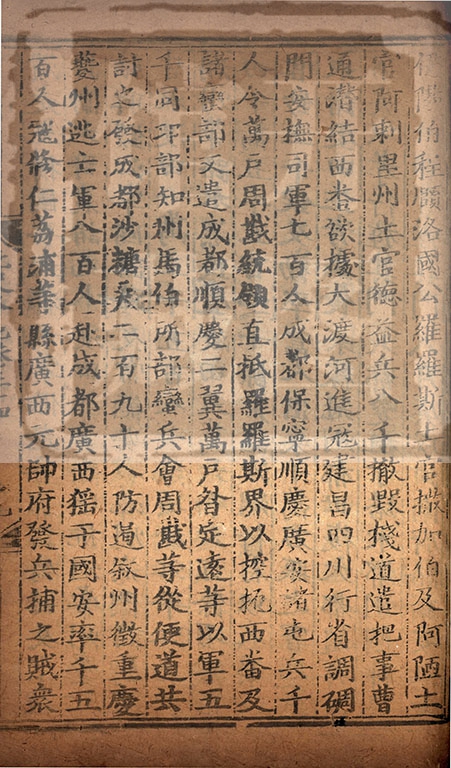 陽伯程頤洛國公羅羅斯土官撒加伯及阿陋土
官阿剌里州土官德益兵八千撤毀棧道遣把事曹
通潛結西番欲據大渡河進寇建昌四川行省調碉
門安撫司軍七百人成都保寧順慶廣安諸屯兵千
人令萬戶周戡統領直抵羅羅斯界以控扼西番及
諸蠻部又遣成都順慶二翼萬戶昝定遠等以軍五
千同卭部知州馬伯所部蠻兵會周戡等從便道共
討之發成都沙糖戶二百九十人防遏叙州徵重慶
夔州逃亡軍八百人赴成都廣西猺于國安率千五
百人冦修仁荔浦等縣廣西元帥府發兵捕之賊衆